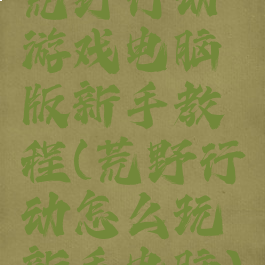 荒野行动
游戏电脑
版新手教
程(荒野行
动怎么玩
新手电脑)